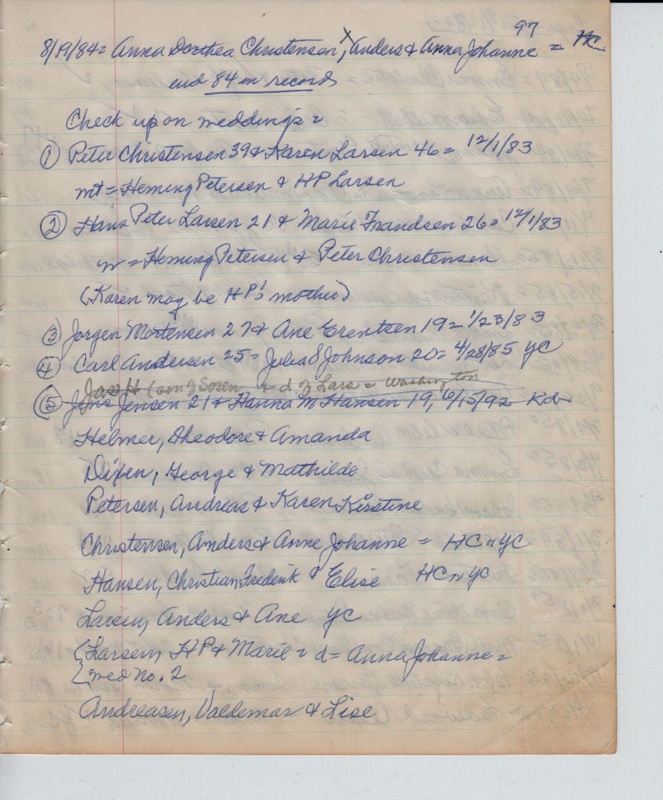 97
8/19/84 = Anna Dorthea Christensen, x Anders & Anna Johanne = HC
end 84 in record
Check up on weddings =
① Peter Christensen 39 & Karen Larsen 46 = 12/1/83
wt = Heming Petersen & HP Larsen
② Hans Peter Larsen 21 & Marie Frandsen 26 = 12/1/83
w = Heming Petersen & Peter Christensen
(Karen may be HP's mother)
③ Jorgen Mortensen 27 & Ane Erentzen 19 = 1/23/83
④ Carl Andersen 25 = Julea Johnson 20 = 4/28/85 YC
Jas H (son) Soren & d of Lars = Washington
⑤ Jens Jensen 21 & Hanna M Hansen 19, 6/15/92
Helmer, Theodore & Amanda
Dixen, George & Mathilde
Petersen, Andreas & Karen Kirstine
Christensen, Anders & Anne Johanne = HC n YC
Hansen, Christian Frederik & Elise HC n YC
Larsen, Anders & Ane YC
{Larsen, HP & Marie = d = Anna Johanne =
{wed no. 2
Andreasen, Valdemar & Lise